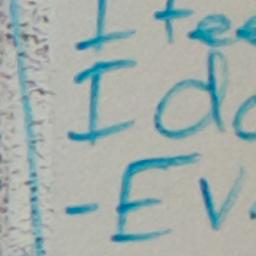 I fee
I do
- Ev